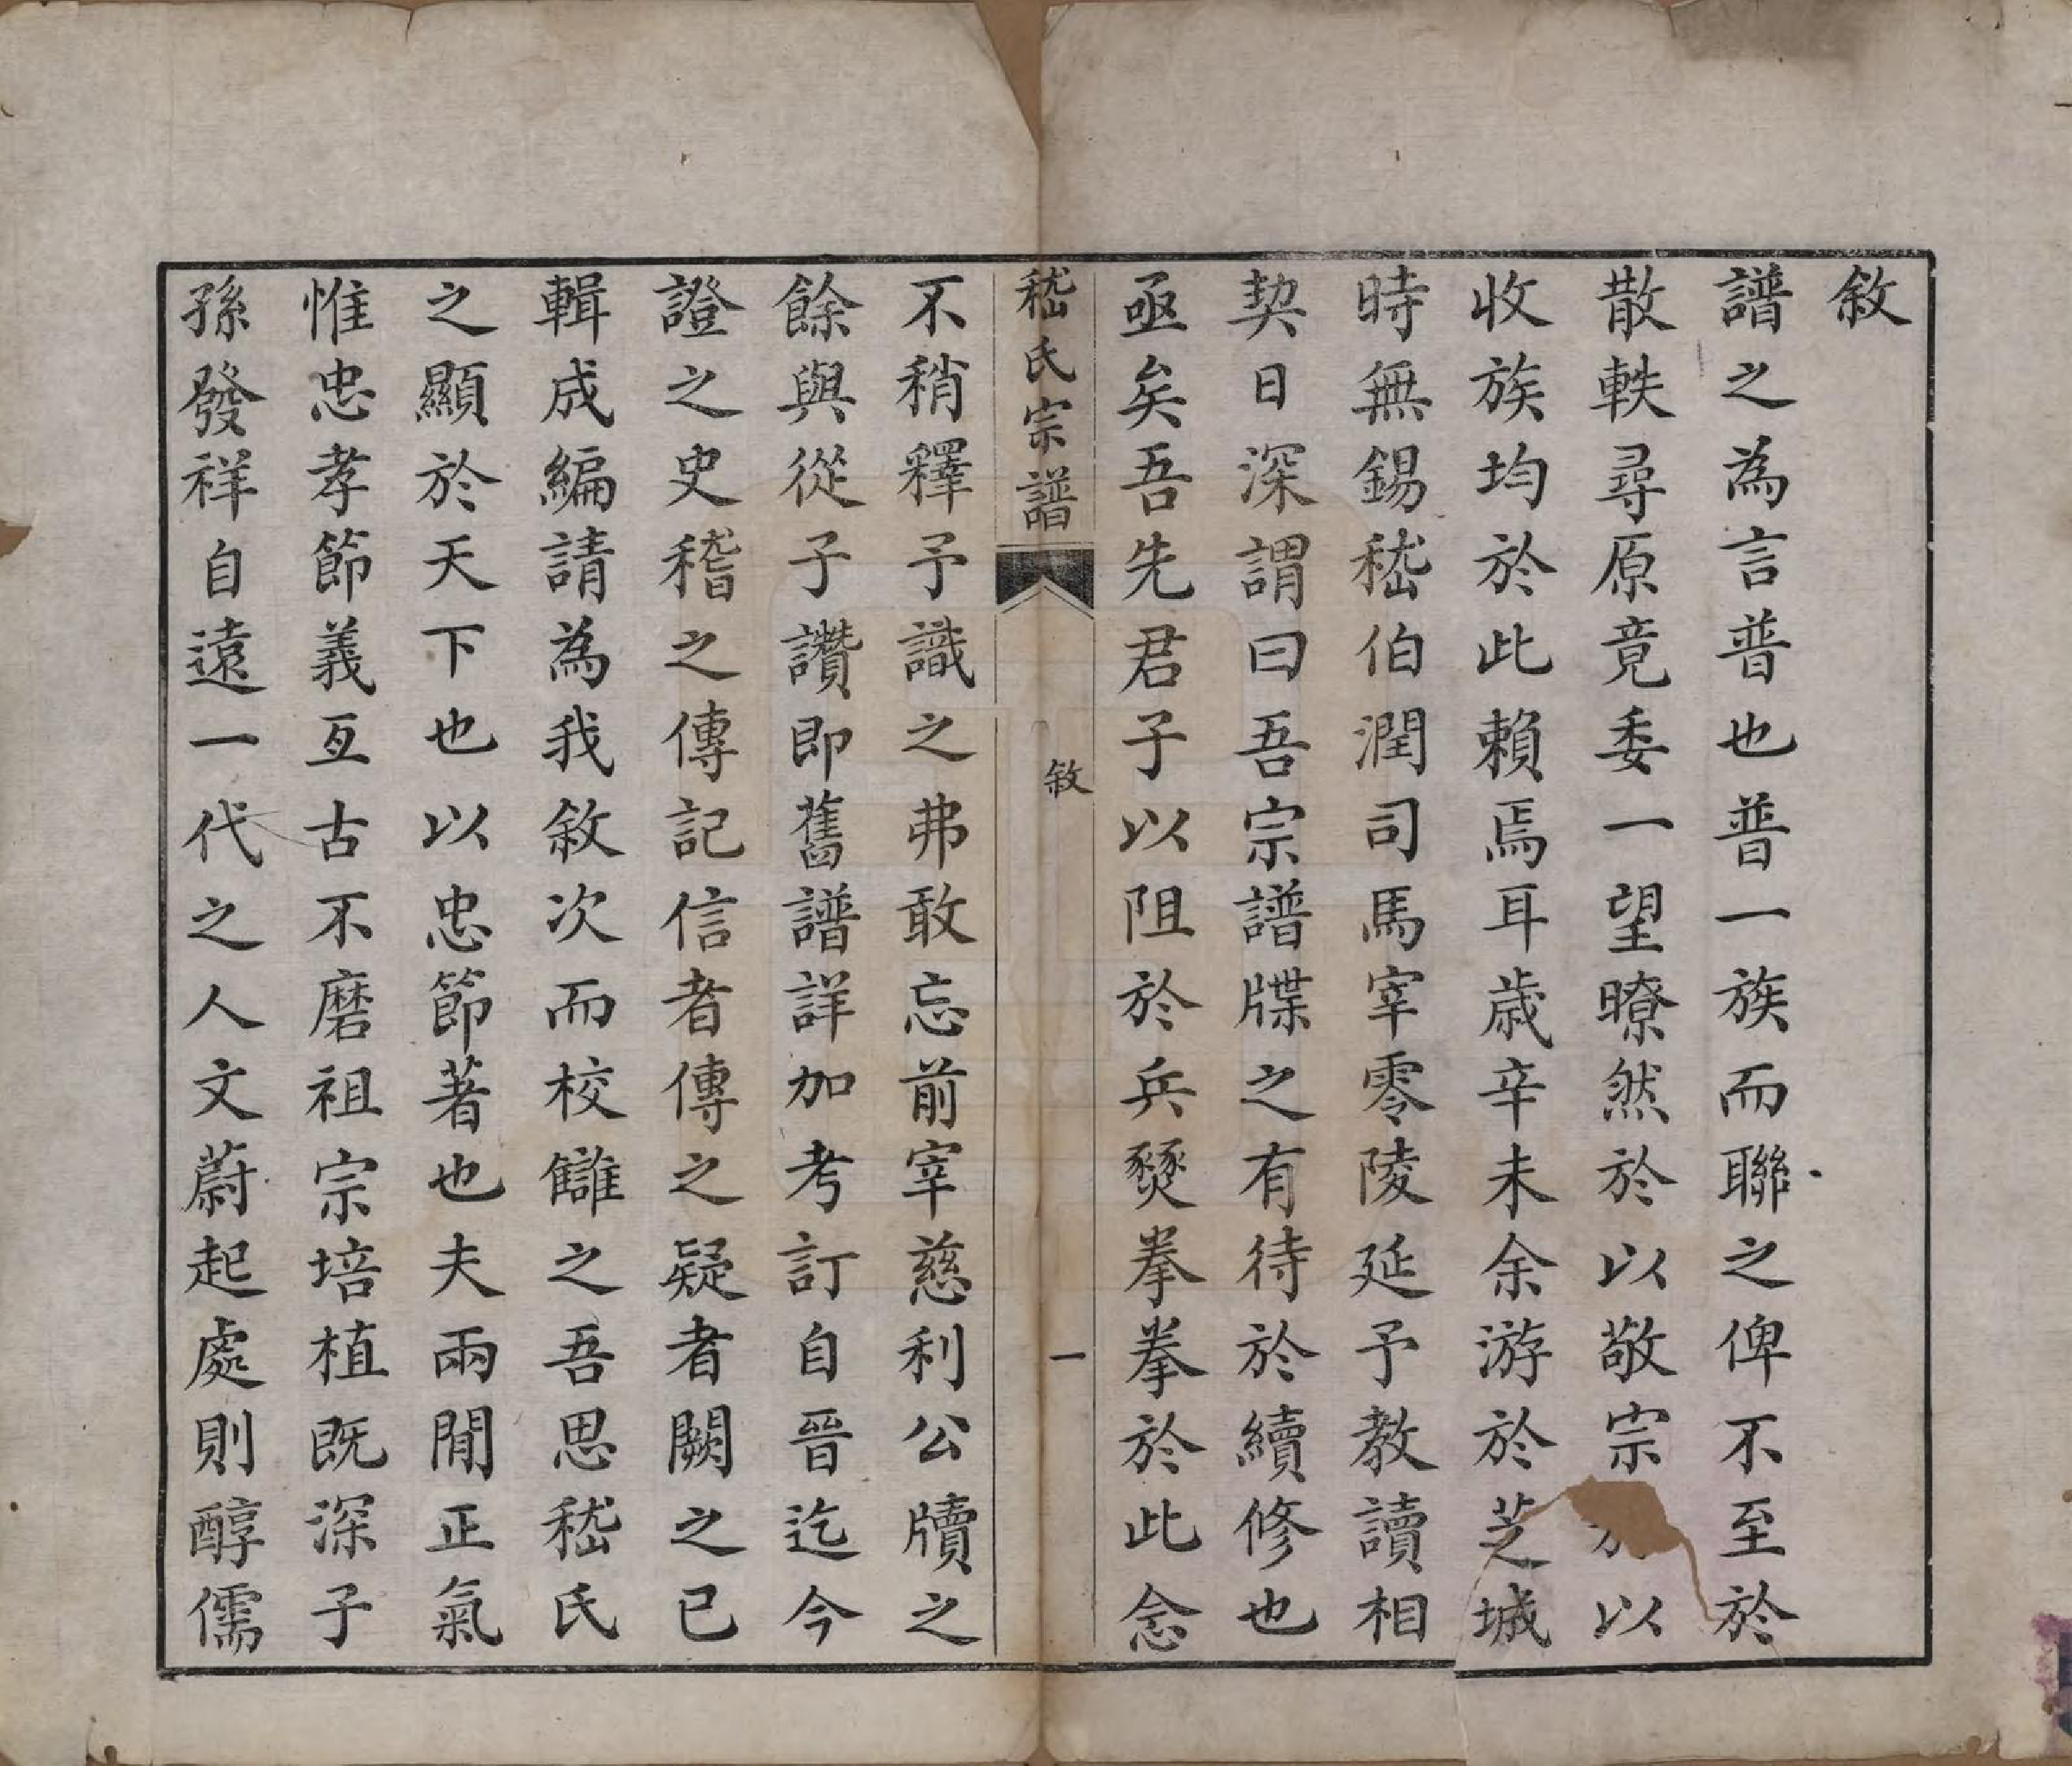 敘
譜之為言普也普一族而聯之俾不至於
散軼尋原竟委一望瞭然於以敬宗以
收族均於此賴焉耳歲辛未余游於芝城
時無錫嵇伯潤司馬宰零陵延予教讀相
契日深謂曰吾宗譜牒之有待於續修也
亟矣吾先君子以阻於兵燹拳拳於此念
嵇氏宗譜 敘 一
不稍釋予識之弗敢忘前宰慈利公牘之
餘與從子讚即舊譜詳加考訂自晉迄今
證之史稽之傳記信者傳之疑者闕之已
輯成編請為我敘次而校讎之吾思嵇氏
之顯於天下也以忠節著也夫兩閒正氣
惟忠孝節義亙古不磨祖宗培植既深子
孫發祥自遠一代之人文蔚起處則醇儒